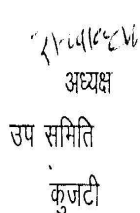 अध्यक्ष
उप समिति
कुंजटी